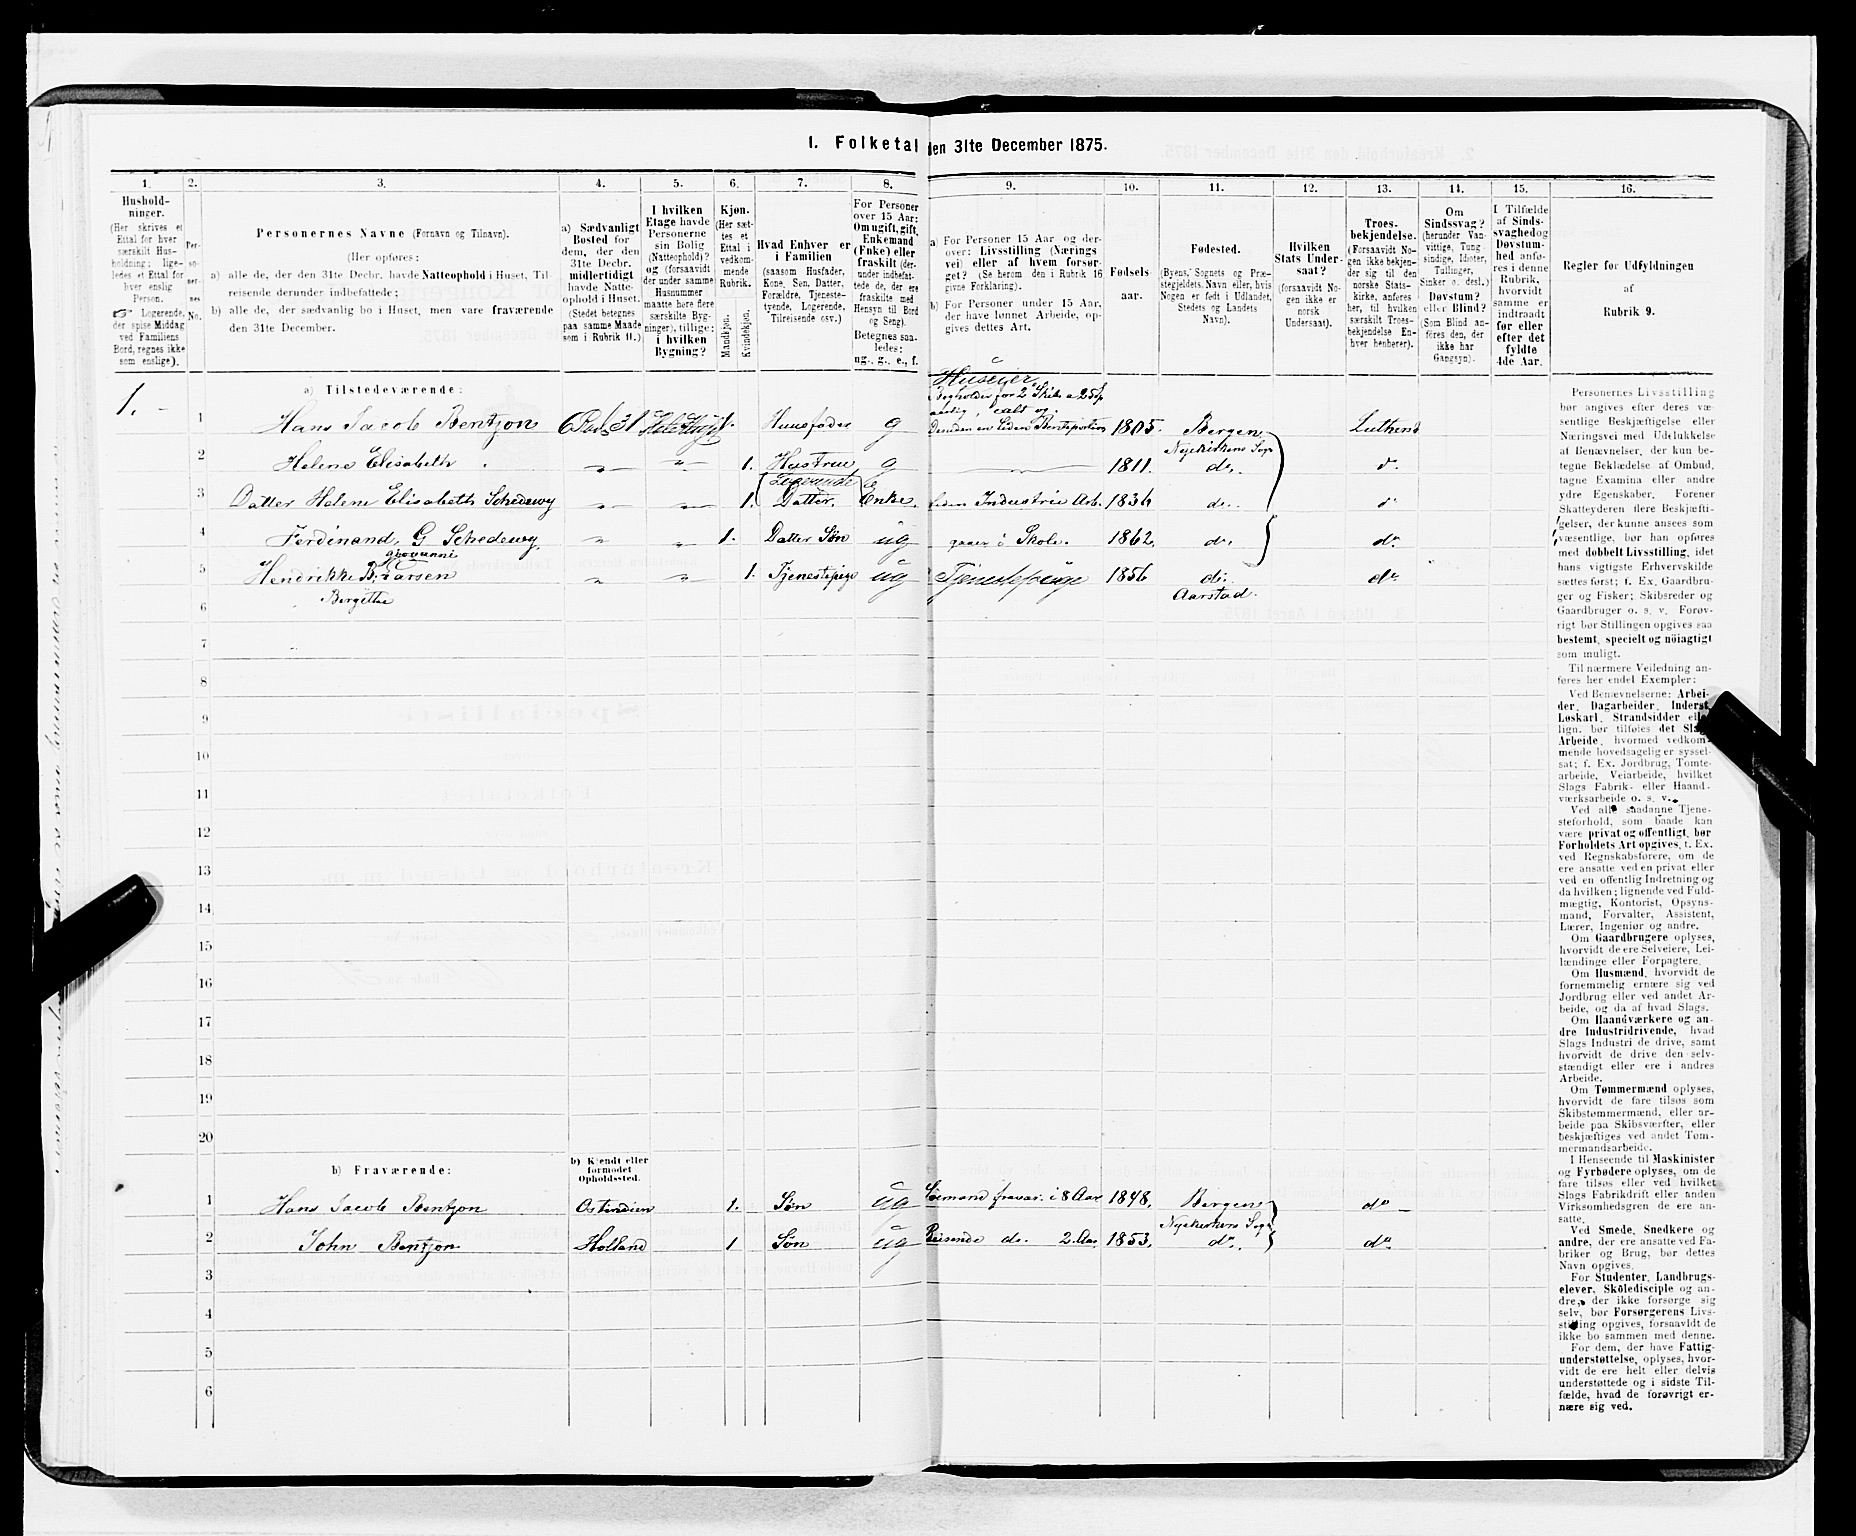 1. Folketal den 31te December 1875.
1. 2. 3. 4. 5. 6. 7. 8. 9. 10. 11. 12. 13. 14. 15. 16.
Hushold-
ninger.
(Her skrives et
Ettal for hver
særskilt Hus-
holdning; lige-
ledes et Ettal for
hver enslig
Person.
☞ Logerende,
der spise Middag
ved Familiens
Bord, regnes ikke
som enslige).
Per-
so-
ner-
nes
No.
Personernes Navne (Fornavn og Tilnavn).
(Her opføres:
a) alle de, der den 31te Decbr. havde Natteophold i Huset, Til-
reisende derunder indbefattede;
b) alle de, der sædvanlig bo i Huset, men vare fraværende
den 31te December.
a) Sædvanligt
Bosted for
dem, der den
31te Decbr.
midlertidigt
havde Natte-
ophold i Huset.
(Stedet betegnes
paa samme Maade
som i Rubrik 11.)
I hvilken
Etage havde
Personerne
sin Bolig
(Natteophold)?
og (forsaavidt
der under samme
Husnummer
maatte høre flere
særskilte Byg-
ninger), tillige:
i hvilken
Bygning?
Kjøn.
(Her sæt-
tes et
Ettal i
vedkom-
mende
Rubrik.
Mandkjøn.
Kvindekjøn.
Hvad Enhver er
i Familien
(saasom Husfader,
Kone, Søn, Datter,
Forældre, Tjeneste-
tyende, Logerende,
Tilreisende osv.)
For Personer
over 15 Aar:
Om ugift, gift,
Enkemand
(Enke) eller
fraskilt (der-
under indbefat-
tede de, der ere
fraskilte med
Hensyn til Bord
og Seng).
Betegnes saa-
ledes:
ug., g., e., f.
a) For Personer 15 Aar og der-
over: Livsstilling (Nærings
vei) eller af hvem forsør-
get? (Se herom den i Rubrik 16
givne Forklaring).
b) For Personer under 15 Aar,
der have lønnet Arbeide, op-
gives dettes Art.
Fødsels
aar.
Fødested.
(Byens, Sognets og Præ-
stegjeldets Navn eller, hvis
Nogen er født i Udlandet,
Stedets og Landets
Navn).
Hvilken
Stats Under-
saat?
(forsaavidt No-
gen ikke er
norsk
Undersaat).
Troes-
bekjendelse.
(Forsaavidt No-
gen ikke bekjen-
der sig til den
norske Stats-
kirke, anføres
her, til hvilken
særskilt Troes-
bekjendelse En-
hver henhører).
Om
Sindssvag?
(herunder Van-
vittige, Tung-
sindige, Idioter,
Tullinger,
Sinker o. desl.)
Døvstum?
eller Blind?
(Som Blind an-
føres den, der
ikke har
Gangsyn).
I Tilfælde
af Sinds-
svaghed og
Døvstum-
hed anfø-
res i denne
Rubrik,
hvorvidt
samme er
indtraadt
før eller
efter det
fyldte
4de Aar.
Regler før Udfyldningen
af
Rubrik 9.
a) Tilstedeværende:
Huseier
1. 1 Hans Jacob Bentzon 1. Huusfader g 1805. Bergen Luthens
Nyekirkens Sogn
2 Helene Elisabeth 1. Hustrue g 1811. do.
Logerende
3 Datter Helene Elisabeth Schedewy 1. Datter. Enke. Industrie Arb. 1836 do.
4 Ferdinand, G Schedewy 1. Datter Søn ug gaaer i Skole. 1862. do. do.
Giovanni
5 Hendrikke B. Larsen 1. Tjenestepige ug Tjenestepige 1856 do. do
Bergithe Aarstad.
6
7
8
9
10
11
12
13
14
15
16
17
18
19
20
b) Fraværende:
b) Kjendt eller
formodet
Opholdssted.
1 Hans Jacob Bentzon Ostindien 1. Søn ug Sømand fravær. i 8 Aar 1848. Bergen do
Nyekirkens Sogn
2 John Bentzon Holland 1 Søn ug Reisende do. 2. Aar 1853. do. do
3
4
5
6
Personernes Livsstilling
bør angives efter deres væ-
sentlige Beskjæftigelse eller
Næringsvei med Udelukkelse
af Benævnelser, der kun be-
tegne Beklædelse af Ombud,
tagne Examina eller andre
ydre Egenskaber. Forener
Skatteyderen flere Beskjæfti-
gelser, der kunne ansees som
væsentlige, bør han opføres
med dobbelt Livsstilling, idet
hans vigtigste Erhvervskilde
sættes først; f. Ex. Gaardbru-
ger og Fisker; Skibsreder og
Gaardbruger o. s. v. Forøv-
rigt bør Stillingen opgives saa
bestemt, specielt og nöiagtigt
som muligt.
Til nærmere Veiledning an-
føres her endel Exempler:
Ved Benævnelserne: Arbei-
der, Dagarbeider, Inderst,
Løskarl, Strandsidder eller
lign. bør tilføies det Slags
Arbeide, hvormed vedkom-
mende hovedsagelig er syssel-
sat; f. Ex. Jordbrug, Tomte-
arbeide, Veiarbeide, hvilket
Slags Fabrik- eller Haand-
værksarbeide o. s. v.
Ved alle saadanne Tjene-
steforhold, som baade kan
være privat og offentligt, bør
Forholdets Art opgives, t. Ex.
ved Regnskabsførere, om de
ere ansatte ved en privat eller
ved en offentlig Indretning og
da hvilken; lignende ved Fuld-
mægtig, Kontorist, Opsyns-
mand, Forvalter, Assistent,
Lærer, Ingeniør og andre.
Om Gaardbrugere oplyses,
hvorvidt de ere Selveiere, Lei-
lændinge eller Forpagtere.
Om Husmænd, hvorvidt de
fornemmelig ernære sig ved
Jordbrug eller ved andet Ar-
beide, og da af hvad Slags.
Om Haandværkere og an-
dre Industridrivende, hvad
Slags Industri de drive, samt
hvorvidt de drive den selv-
stændigt eller ere i andres
Arbeide.
Om Tømmermænd oplyses,
hvorvidt de fare tilsøs som
Skibstømmermænd, eller ar-
beide paa Skibsværfter, eller
beskjæftiges ved andet Tøm-
mermandsarbeide.
I Henseende til Maskinister
og Fyrbødere oplyses, om de
fare tilsøs eller ved hvilket
Slags Fabrikdrift eller anden
Virksomhedsgren de ere an-
satte.
Ved Smede, Snedkere og
andre, der ere ansatte ved Fa-
briker og Brug, bør dettes
Navn opgives.
For Studenter, Landbrugs-
elever, Skôledisciple og an-
dre, der ikke forsørge sig
selv, bør Forsørgerens Livs-
stilling opgives, forsaavidt de
ikke bo sammen med denne.
For dem, der have Fattig-
understøttelse, oplyses, hvor-
vidt de ere helt eller delvis
understøttede og i sidste Til-
fælde, hvad de forøvrigt er-
nære sig ved.